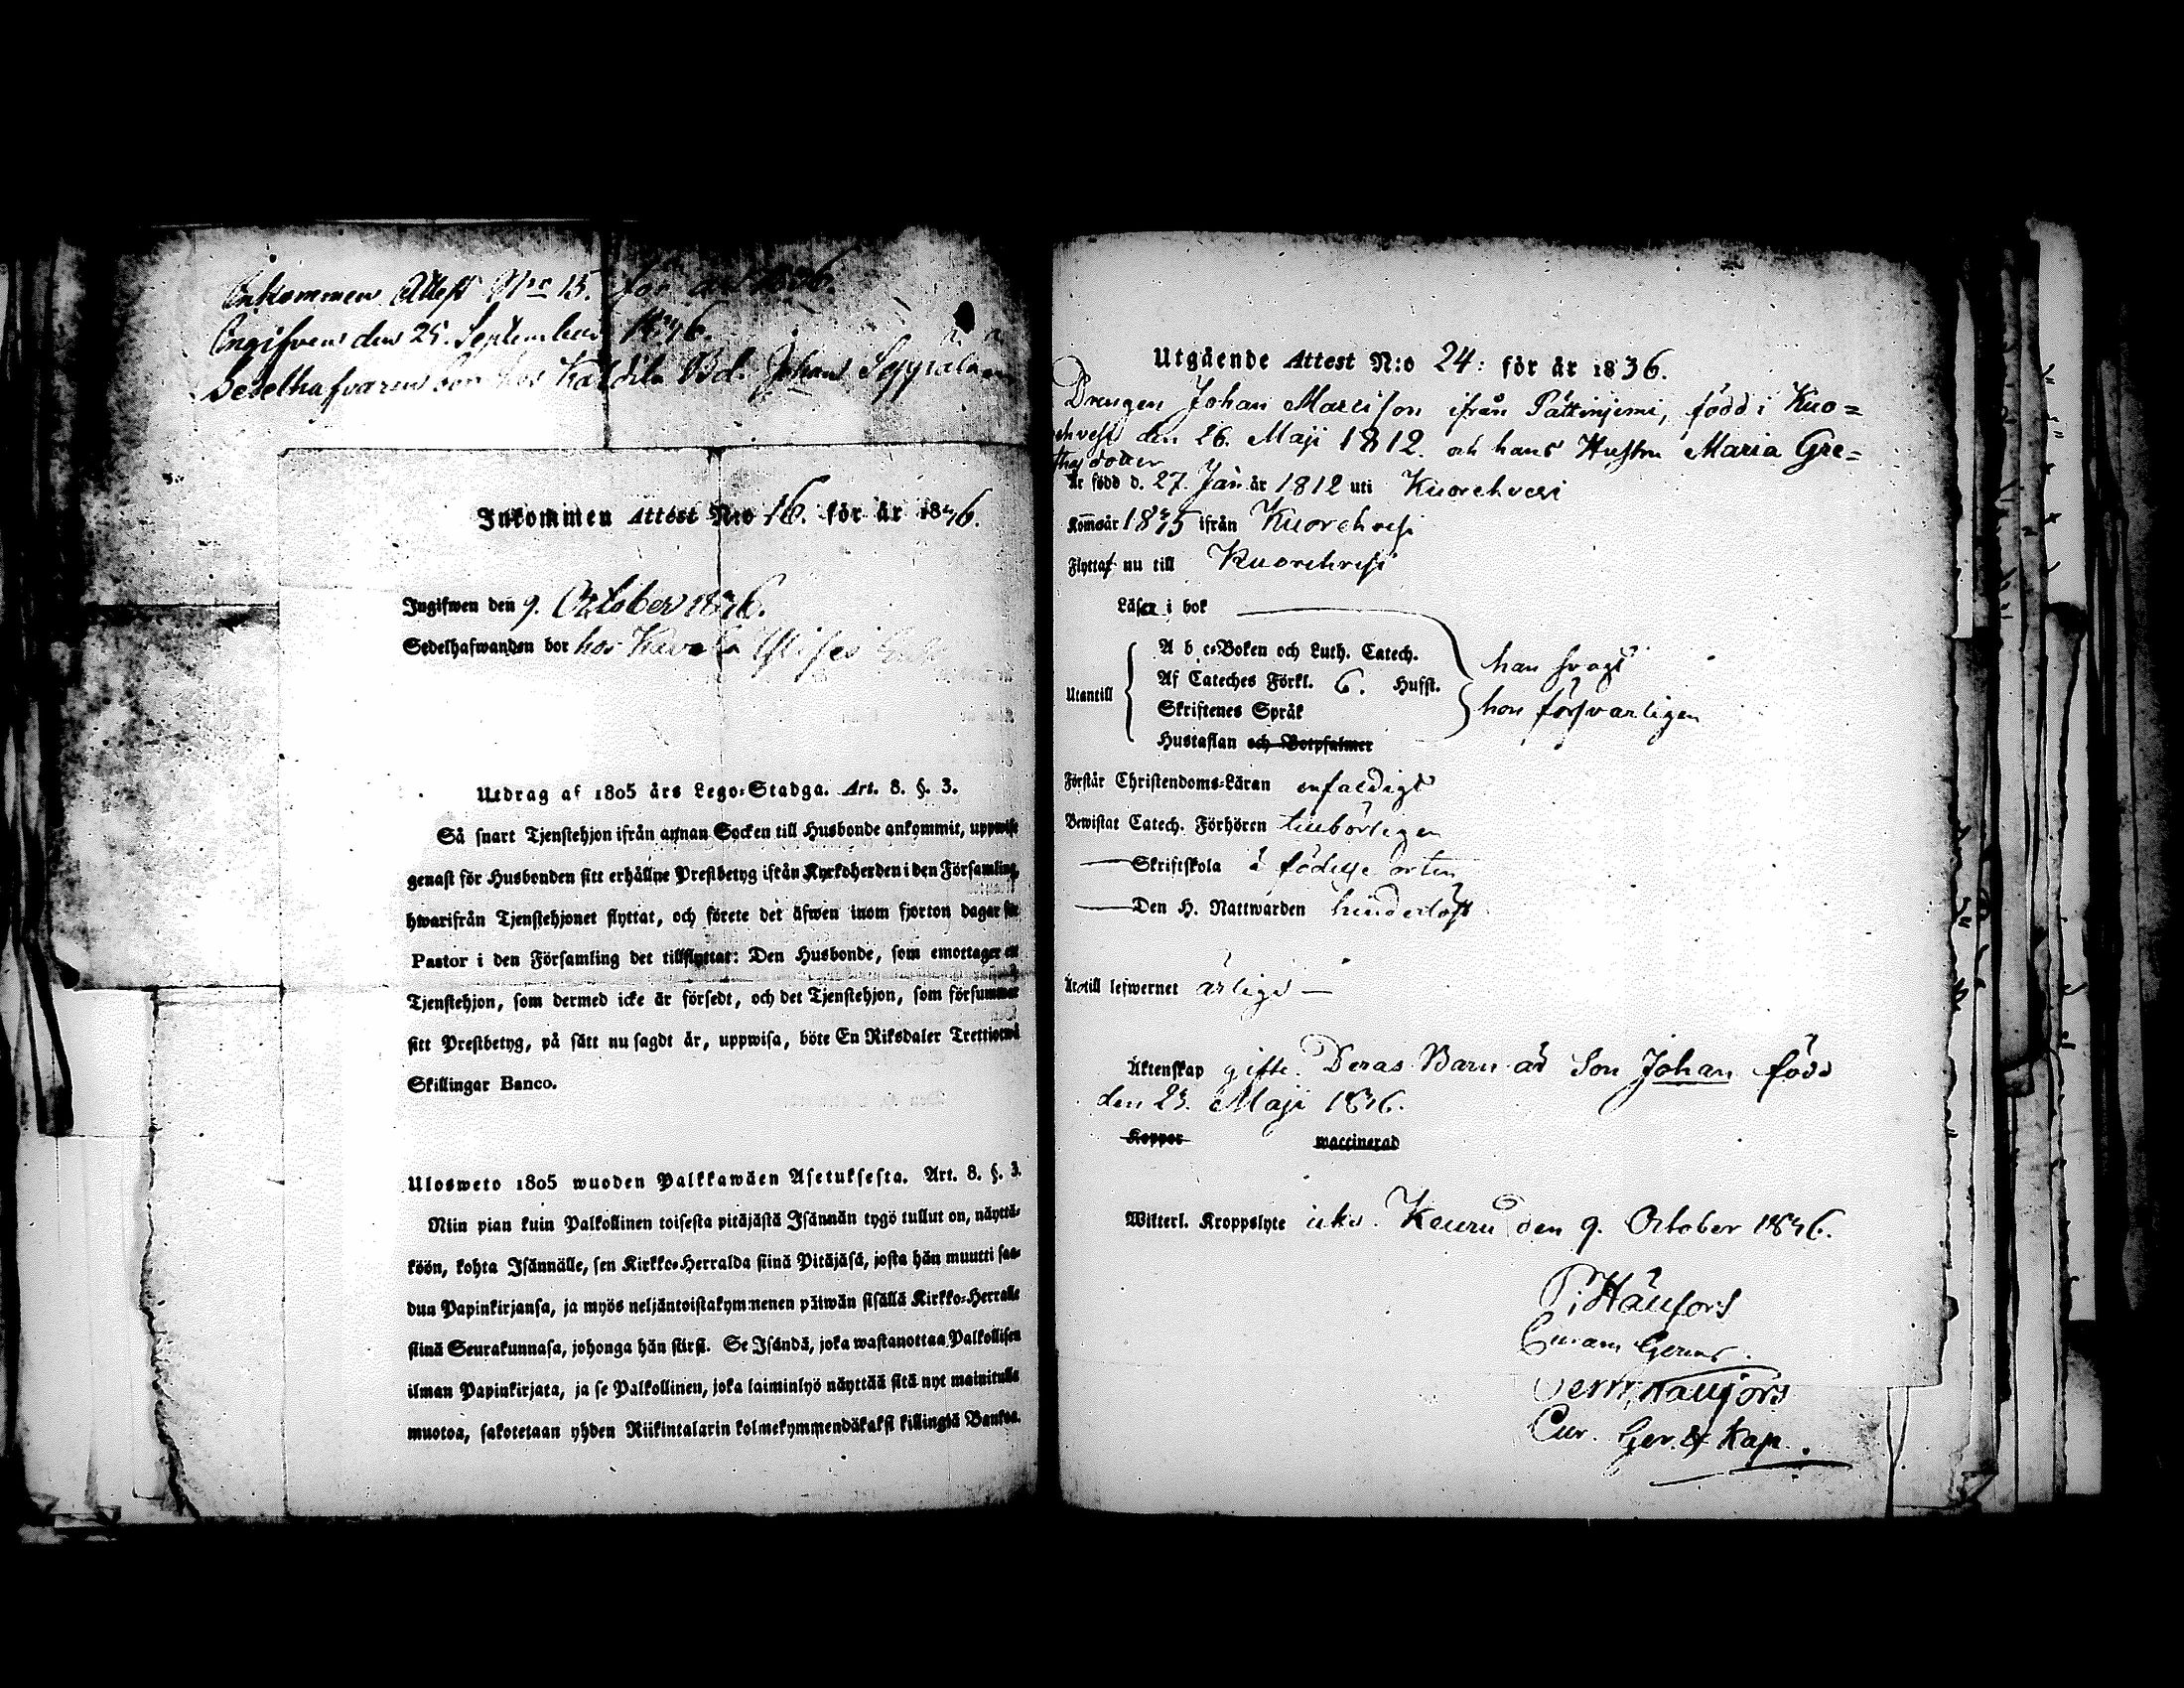 Inkommen Attest Nro 15. för år 1836.
Ingifven den 25. September 1836.
Sedelhafvaren bor hos Johan
Inkommen Attest N:o 16. för år 1836.
Ingifwen den 9. October 1836.
Sedelhafwanden bor hos
Utdrag af 1805 års Lego-Stadga. Art. 8. §. 3.
Så snart Tjenstehjon ifrån annan Socken till Husbonde ankommit, uppwise
genast för Husbonden sitt erhållne Prestbetyg ifrån Kyrkoherden i den Församling,
hwarifrån Tjenstehjonet flyttat, och förete det äfwen inom fjorton dagar för
Pastor i den Församling det tillflyttat: Den Husbonde, som emottager ett
Tjenstehjon, som dermed icke är försedt, och det Tjenstehjon, som försummar
sitt Prestbetyg, på sätt nu sagdt är, uppwisa, böte En Riksdaler Trettiotwå
Skillingar Banco.
Ulosweto 1805 wuoden Palkkawäen Asetuksesta. Art. 8. §. 3.
Niin pian kuin Palkollinen toisesta pitäjästä Isännän tygö tullut on, näyttä-
köön, kohta Isännälle, sen Kirkko-Herralda siinä Pitäjäsä, josta hän muutti saa-
dun Papinkirjansa, ja myös neljäntoistakymmenen päiwän sisällä Kirkko-Herralle
siinä Seurakunnasa, johonga hän siirsi. Se Isändä, joka wastanottaa Palkollisen
ilman Papinkirjata, ja se Palkollinen, joka laiminlyö näyttää sitä nyt mainitulla
muotoa, sakotetaan yhden Riikintalarin kolmekymmendäkaksi killingiä Bankoa.
Utgående Attest N:o 24: för år 1836.
Drengen Johan Marcison ifrån född i Kuo=
rehvesi den 26. Maji 1812. och hans Hustru Maria Gre=
thas dotter
Är född d. 27. Jan. år 1812 uti Kuorehvesi
Kom̅o år 1835 ifrån Kuorehvesi
Flytta nu till Kuorehvesi
Läser i bok
A b c-Boken och Luth. Catech.
Af Cateches Förkl. 6. Hufst.
Utantill
Skriftenes Språk
Hustaflan och Botpsalmer
han svagt
hon försvarligen
Förstår Christendoms-Läran enfaldigt
Bewistat Catech. Förhören tillbörligen
Skriftskola å födelse orten
Den H. Nattwarden hinderlöst
till lefwernet ärliga
Äktenskap gifte. Deras Barn är Son Johan född
den 23. Maji 1836.
Koppor waccinerad
Witterl. Kroppslyte icke. Keuru den 9. October 1836.
Curam Gerens.
Cur. Ger. & Kap.